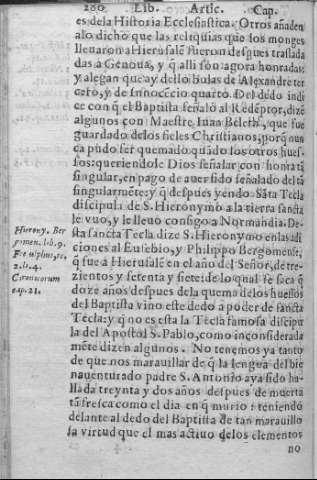 200 Lib. Artic. Cap.
es dela Historia Ecclesiastica. Otros añaden
alo dicho que las reliquias que los monges
lleuaron a Hierusalẽ fueron despues traslada
das a Genoua, y q̃ alli son agora honradas:
y alegan que ay dello Bulas de Alexandre ter
cero, y de Innocẽcio quarto. Del dedo indi
ce con q̃ el Baptista señalò al Redẽptor, dizẽ
algunos con Maestre Iuan Beleth, que fue
guardado delos fieles Christianos, porq̃ nun
ca pudo ser quemado quãdo los otros hues
sos: queriendole Dios señalar con honra tã
singular, en pago de auer sido señalado del tã
singularmẽte: y q̃ despues yendo Sãta Tecla
discipula de S. Hieronymo a la tierra sancta
le vuo, y le lleuo consigo a Normandia. De
sta sancta Tecla dize S. Hieronymo en las adi
ciones al Eusebio, y Philippo Bergomense,
q̃ fue a Hierusalẽ en el año del Señor, de tre-
zientos y setenta y siete: de lo qual se saca q̃
doze años despues dela quema delos huessos
del Baptista vino este dedo a poder de sancta
Tecla: y q̃ no es esta la Tecla famosa discipu
la del Apostol S. Pablo, como inconsiderada
mẽte dizen algunos. No tenemos ya tanto
de que nos marauillar de q̃ la lengua del bie
nauenturado padre S. Antonio aya sido ha-
llada treynta y dos años despues de muerta
tã fresca como el dia en q̃ murio: teniendo
delante al dedo del Baptista de tan marauillo
sa virtud que el mas actiuo delos elementos
no
Hierony. Ber
gomen. lib. 9.
2. li. 4.
cap. 21.